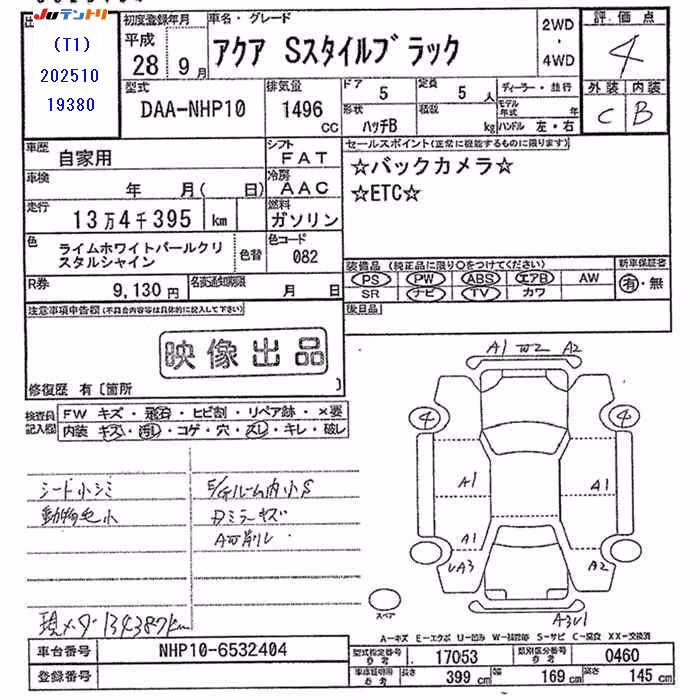 JUテントリ
(T1)
202510
19380
初度登録年月
平成
28年9月
車名・グレード
アクア Sスタイルブラック
2WD
・
4WD
評価点
4
外装 内装
C B
型式
DAA-NHP10
排気量
1496
CC
ドア
5
定員
5人
形状
ハッチB
積載
kg
ディーラー・並行
モデル年式 年
ハンドル 左・右
車歴
自家用
シフト
FAT
車検
年 月( 日)
冷房
AAC
走行
13万4千395 km
燃料
ガソリン
色
ライムホワイトパールクリスタルシャイン
色替
色コード
082
R券
9,130円
名変通知期限
月 日
セールスポイント(正常に機能するものに限ります)
☆バックカメラ☆
☆ETC☆
装備品 (純正品に限り○をつけてください)
PS PW ABS エアB AW
SR ナビ TV カワ
新車保証書
有・無
後日品
注意事項申告欄(不具合内容等は具体的に記入して下さい)
映像出品
修復歴 有〔箇所 〕
検査員記入欄
FW キズ・飛石・ヒビ割・リペア跡・×要
内装 キズ・汚れ・コゲ・穴・スレ・キレ・破レ
シート小シミ
動物毛小
E/Gルーム内小S
Dミラーキズ
A可削レ
現メーター134387km
A1 W2 A2
4 4
A1 A1
A1
UA3 A2
A3U1
スペア
A-キズ E-エクボ U-凹み W-補修跡 S-サビ C-腐食 XX-交換済
車台番号
NHP10-6532404
登録番号
型式指定番号
参考
17053
類別区分番号
参考
0460
車庫証明用
参考
長さ 399 cm 幅 169 cm 高さ 145 cm